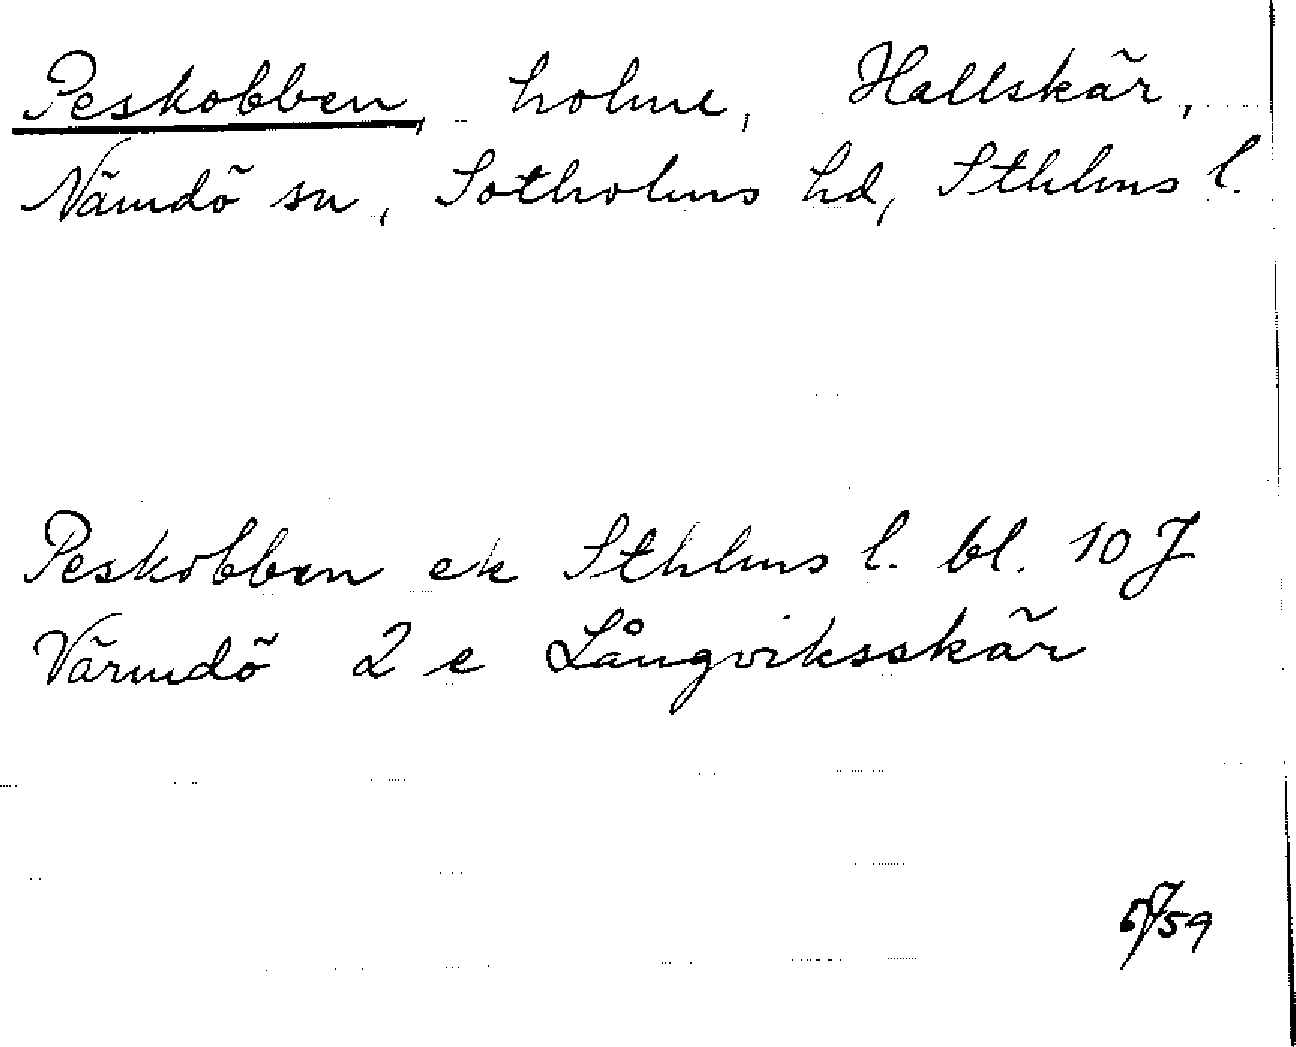 Peskobben, holme, Hallskär,
Nämdö sn, Sotholms hd, Sthlms l.
Peskobben ek Sthlms l. bl. 10 J
Värmdö 2 e Långviksskär
59